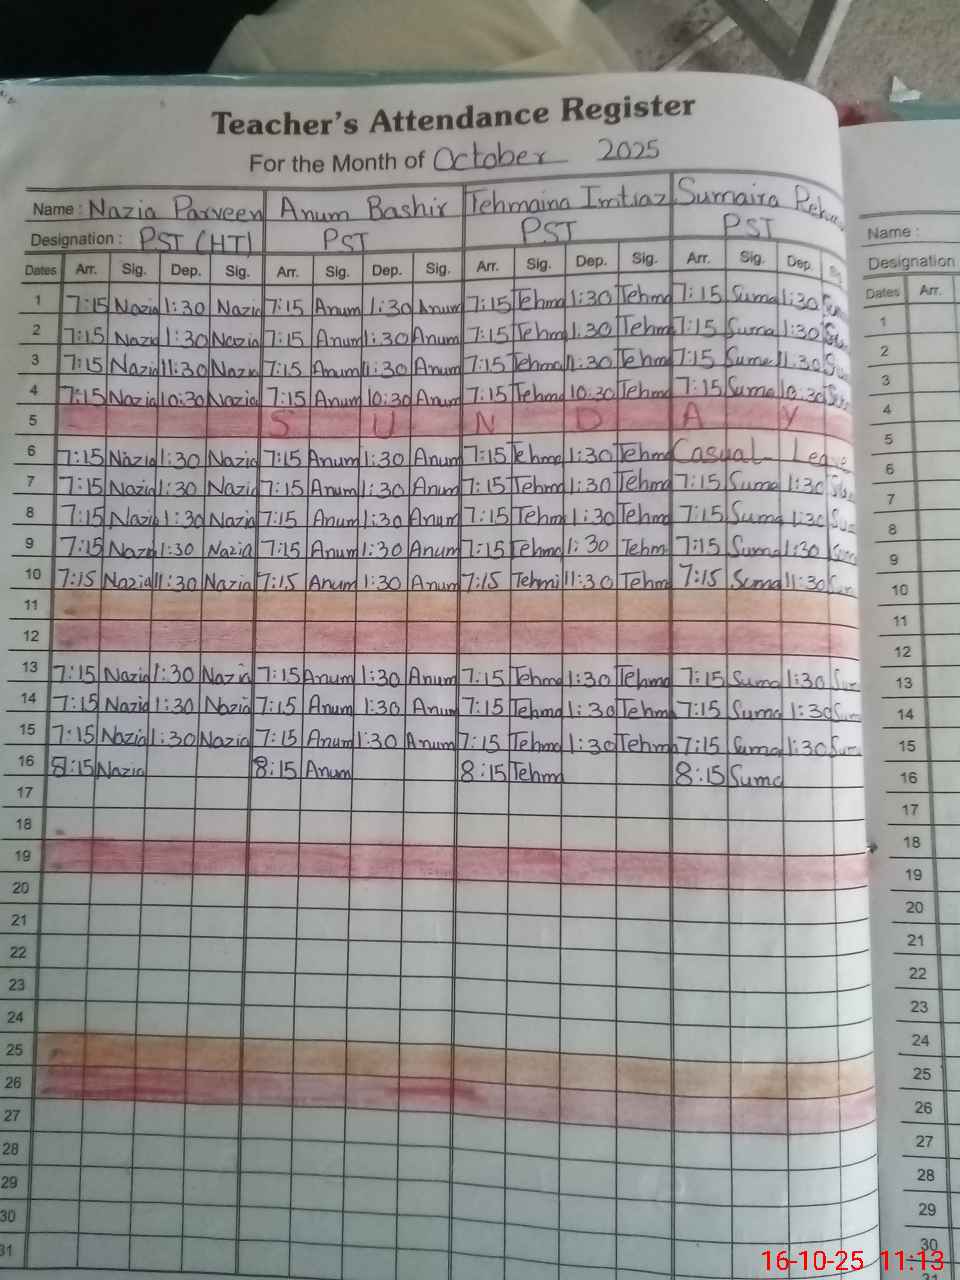 Teacher's Attendance Register
For the Month of October 2025
Name : Nazia Parveen Anum Bashir Tehmaina Imtiaz Sumaira
Designation : PST (HT) PST PST PST
Dates Arr. Sig. Dep. Sig. Arr. Sig. Dep. Sig. Arr. Sig. Dep. Sig. Arr. Sig. Dep.
1 7:15 Nazia 1:30 Nazia 7:15 Anum 1:30 Anum 7:15 Tehma 1:30 Tehma 7:15 Suma 1:30
2 7:15 Nazia 1:30 Nazia 7:15 Anum 1:30 Anum 7:15 Tehma 1:30 Tehma 7:15 Suma 1:30
3 7:15 Nazia 11:30 Nazia 7:15 Anum 11:30 Anum 7:15 Tehma 11:30 Tehma 7:15 Suma 11:30
4 7:15 Nazia 10:30 Nazia 7:15 Anum 10:30 Anum 7:15 Tehma 10:30 Tehma 7:15 Suma 10:30
5 S U N D A Y
6 7:15 Nazia 1:30 Nazia 7:15 Anum 1:30 Anum 7:15 Tehma 1:30 Tehma Casual Leave
7 7:15 Nazia 1:30 Nazia 7:15 Anum 1:30 Anum 7:15 Tehma 1:30 Tehma 7:15 Suma 1:30
8 7:15 Nazia 1:30 Nazia 7:15 Anum 1:30 Anum 7:15 Tehm 1:30 Tehma 7:15 Suma 1:30
9 7:15 Nazi 1:30 Nazia 7:15 Anum 1:30 Anum 7:15 Tehma 1:30 Tehm 7:15 Suma 1:30
10 7:15 Nazia 11:30 Nazia 7:15 Anum 1:30 Anum 7:15 Tehmi 11:30 Tehm 7:15 Suma 11:30
11
12
13 7:15 Nazia 1:30 Nazia 7:15 Anum 1:30 Anum 7:15 Tehma 1:30 Tehma 7:15 Suma 1:30
14 7:15 Nazia 1:30 Nazia 7:15 Anum 1:30 Anum 7:15 Tehma 1:30 Tehma 7:15 Suma 1:30
15 7:15 Nazia 1:30 Nazia 7:15 Anum 1:30 Anum 7:15 Tehma 1:30 Tehma 7:15 Suma 1:30
16 8:15 Nazia 8:15 Anum 8:15 Tehm 8:15 Suma
17
18
19
20
21
22
23
24
25
26
27
28
29
30
31
Name :
Designation
Dates Arr.
1
2
3
4
5
6
7
8
9
10
11
12
13
14
15
16
17
18
19
20
21
22
23
24
25
26
27
28
29
30
16-10-25 11:13